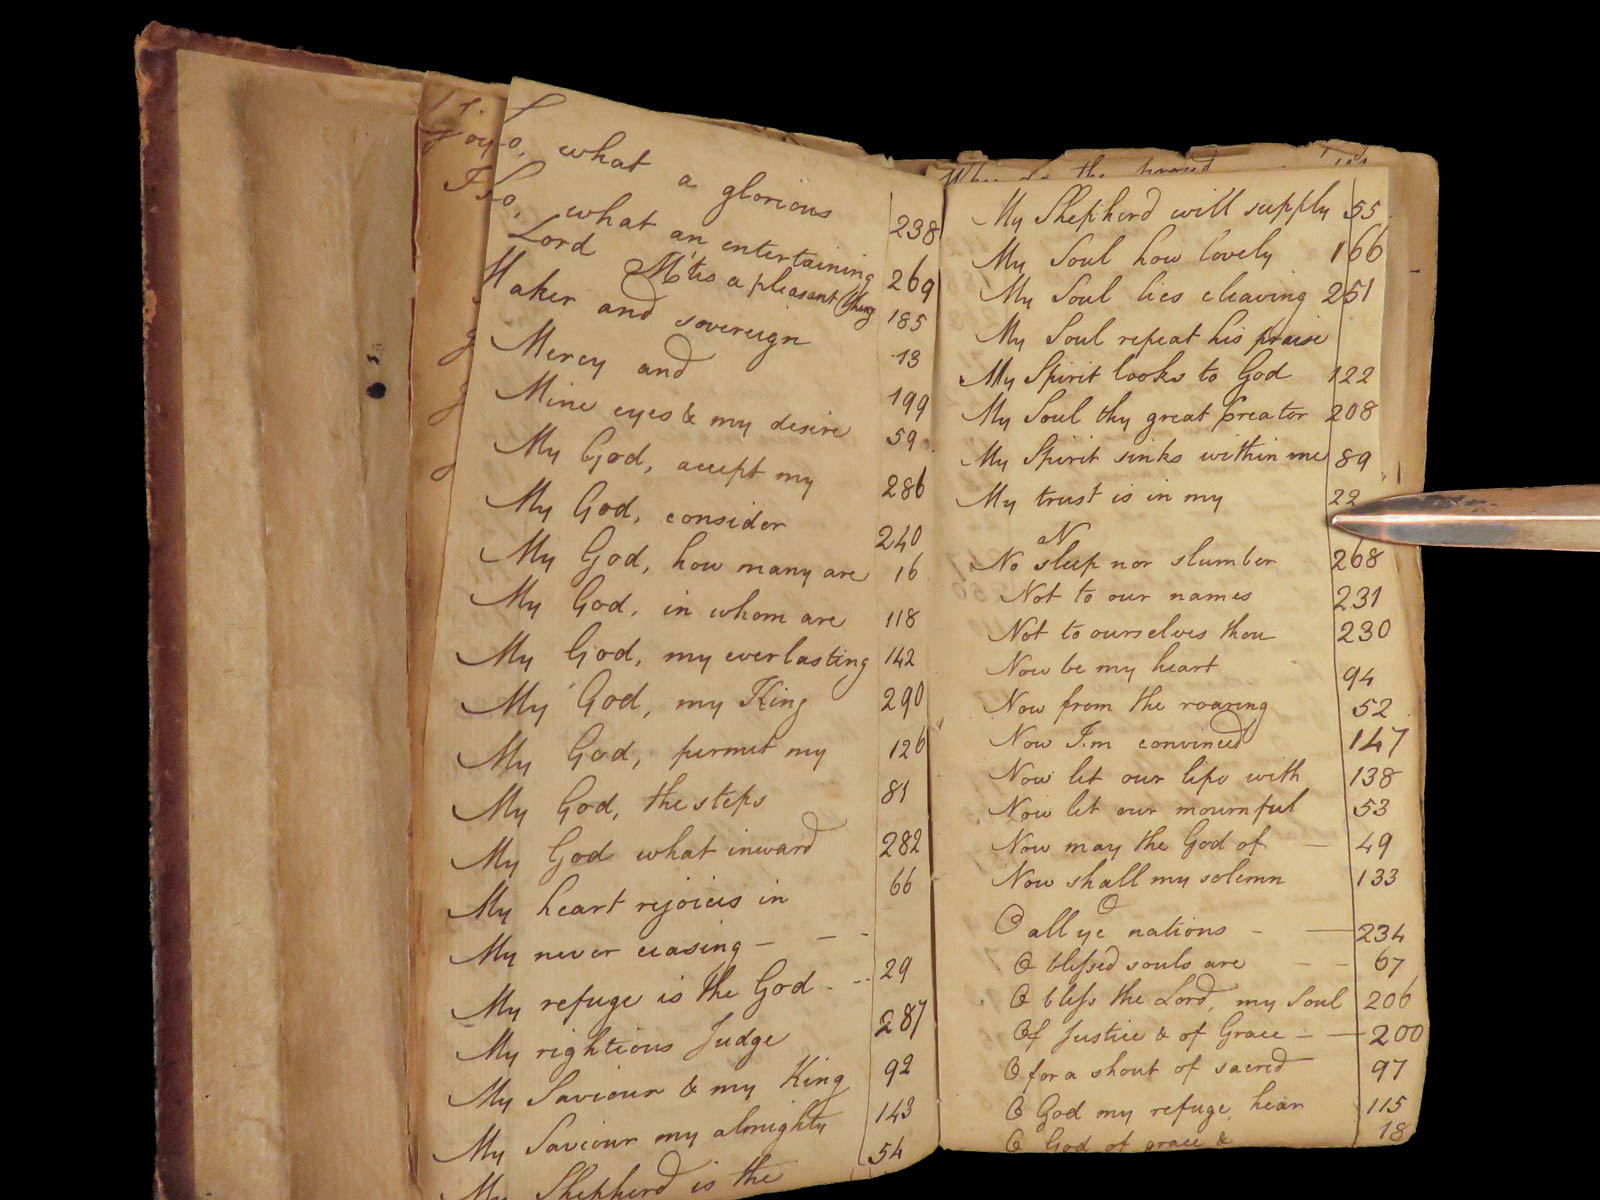 Lo, what a glorious 238
Lo, what an entertaining 269
Lord 'tis a pleasant thing 185
M
Maker and sovereign 13
Mercy and 199
Mine eyes & my desire 59
My God, accept my 286
My God, consider 240
My God, how many are 16
My God, in whom are 118
My God, my everlasting 142
My God, my King 290
My God, permit my 126
My God, the steps 81
My God what inward 282
My heart rejoices in 66
My never ceasing — — -
My refuge is the God - -- 29
My rightious Judge 287
My Saviour & my King 92
My Saviour my almighty 143
My Shepherd is the 54
the proud
My Shepherd will supply 55
My Soul how lovely 166
My Soul lies cleaving 251
My Soul repeat his praise
My Spirit looks to God 122
My Soul thy great Creator 208
My Spirit sinks within me 89
My trust is in my 22
N
No sleep nor slumber 268
Not to our names 231
Not to ourselves thou 230
Now be my heart 94
Now from the roaring 52
Now I.m convinced 147
Now let our lips with 138
Now let our mournful 53
Now may the God of — 49
Now shall my solemn 133
O
O all ye nations - — 234
O blessed souls are — - 67
O bless the Lord, my Soul 206
Of Justice & of Grace — — 200
O for a shout of sacred 97
O God my refuge, hear 115
O God of grace & 18